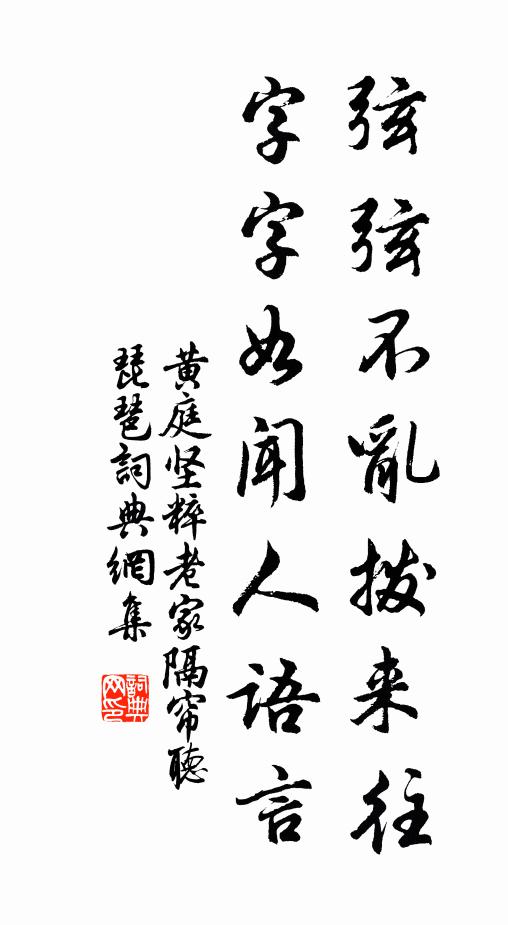 弦弦不亂拨来往
字字如闻人語言
黄庭坚粹老家隔帘聽
琵琶詞典網集
詞典网印